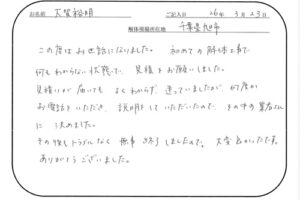 お名前 大賀裕明 ご記入日 26年 3月 23日
解体現場所在地 千葉県旭市
この度はお世話になりました。初めての解体工事で
何もわからない状態で、見積をお願いしました。
見積りが届いてもよくわからず、迷っていましたが、何度か
お電話をいただき、説明をしていただいたので、その中の業者さん
に決めました。
その後もトラブルなく無事終了しましたので、大変良かったです。
ありがとうございました。